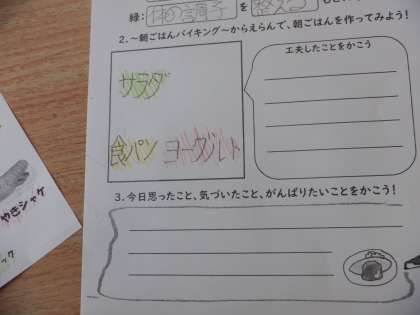 緑: 体の調子 を 整える
2. ～朝ごはんバイキング～からえらんで、朝ごはんを作ってみよう!
工夫したことをかこう
サラダ
食パン ヨーグルト
3. 今日思ったこと、気づいたこと、がんばりたいことをかこう!
やきシャケ
ック